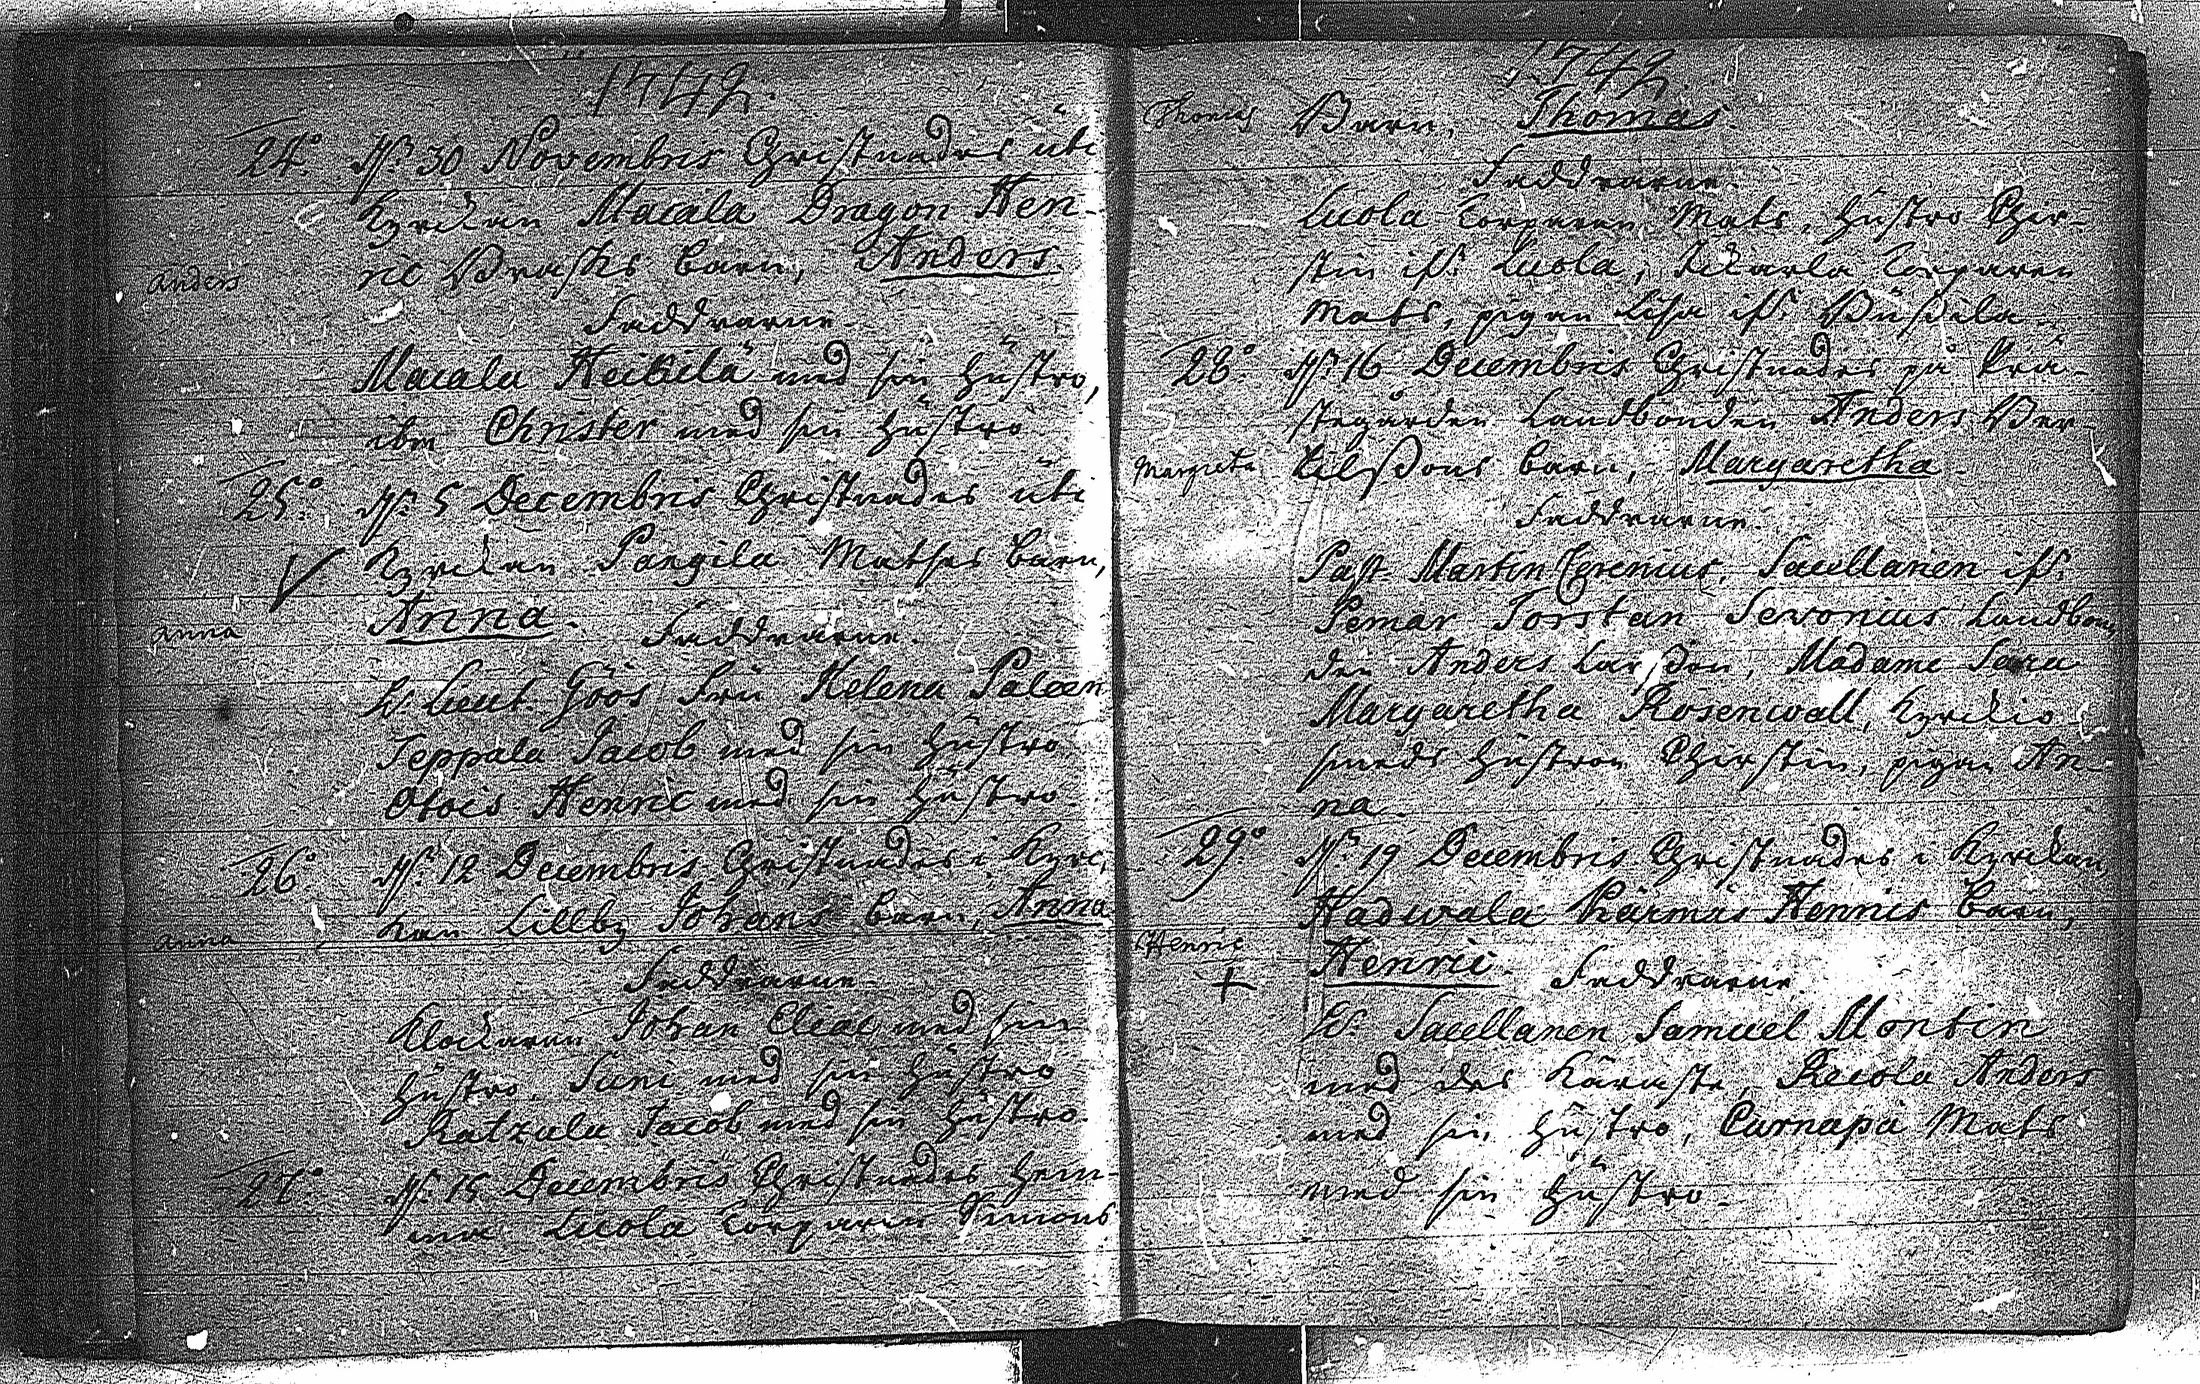 1742.
24:o d. 30 Novembris Christnades uti
Kyrckan Macala Dragon Hen-
ric Brasks barn, Anders.
Anders
Faddrarne.
Macala Heickilä med sin hustro,
ibm Christer med sin hustro
25:o d. 5 Decembris Christnades uti
Kyrckan Pangila Mathses barn,
Anna. Faddrarne.
Anna
H. Lieut. Göös Fru Helena
Teppala Jacob med sin hustro
Otois Henric med sin hustro.
26:o d. 12 Decembris Christnades i Kyrc-
kan Lillby Johans barn, Anna
Anna
Faddrarne
Klockaren Johan med sin
hustro, Suni med sin hustro
Ratzula Jacob med sin hustro.
27:o d. 15 Decembris Christnades hem-
ma Lucola Torparen Simons
1742.
Thomas Barn, Thomas.
Faddrarne.
Lucola Torparen Mats, hustro Chir-
stin ifr. Lucola, Torparen
Mats, pigan Lisa ifr.
28:o d. 16 Decembris Christnades på Prä-
stegården Landbonden Anders Ber-
Margreta tilssons barn, Margaretha.
Faddrarne.
Past. Martin Sacellanen ifr.
Pemar Torstan Sevonius Landbon-
den Anders Larsson, Madame Sara
Margaretha Rosenwall, Kyrckio-
smeds hustron Chirstin, pigan An-
na.
29:o d. 19 Decembris Christnades i Kyrckan
Hadwala Kärmis Henrics barn,
Henric
Henric. Faddrarne.
H. Sacellanen Samuel Montin
med des Käraste, Recola Anders
med sin hustro, Carnapä Mats
med sin hustro.